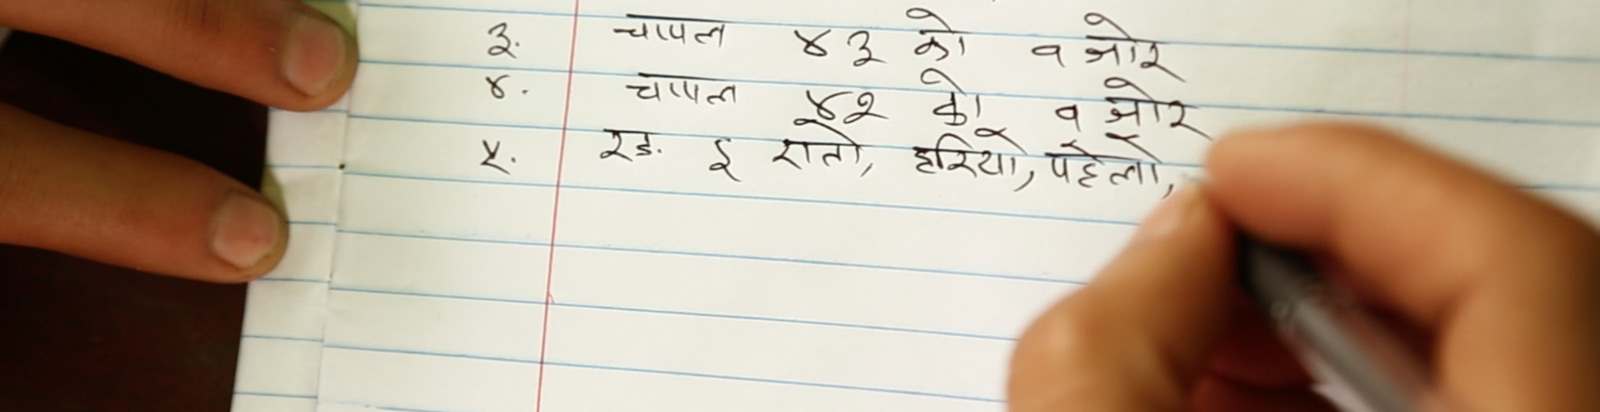 ३. चापल ४३ को १ जोर
४. चापल ४२ को १ जोर
५. रङ. ई रातो, हरियो, पहेलो,